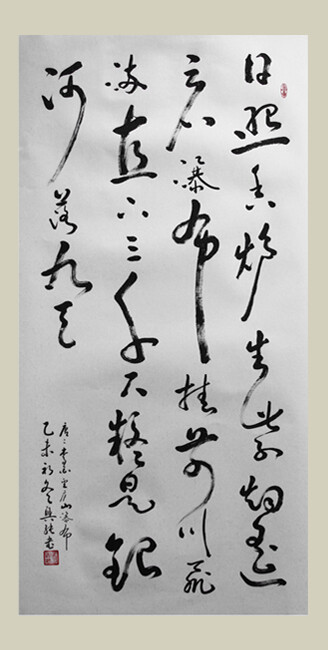 日照香炉生紫烟遥
看瀑布挂前川飛
流直下三千尺疑是銀
河落九天
唐李白望庐山瀑布
乙未初冬興书